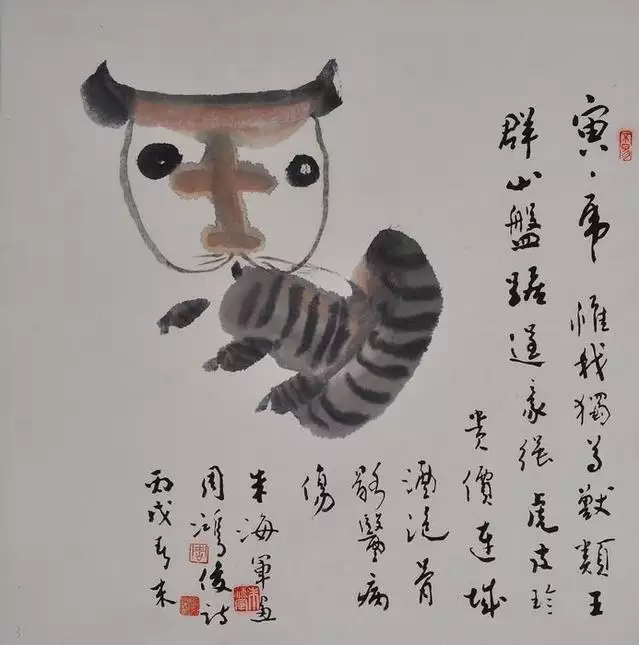 寅、虎 惟我獨尊獸類王
群山盤踞逞豪強 虎皮珍
貴價連城
酒泡骨
骸醫病
傷
朱海軍畫
周鴻俊詩
丙戌春末